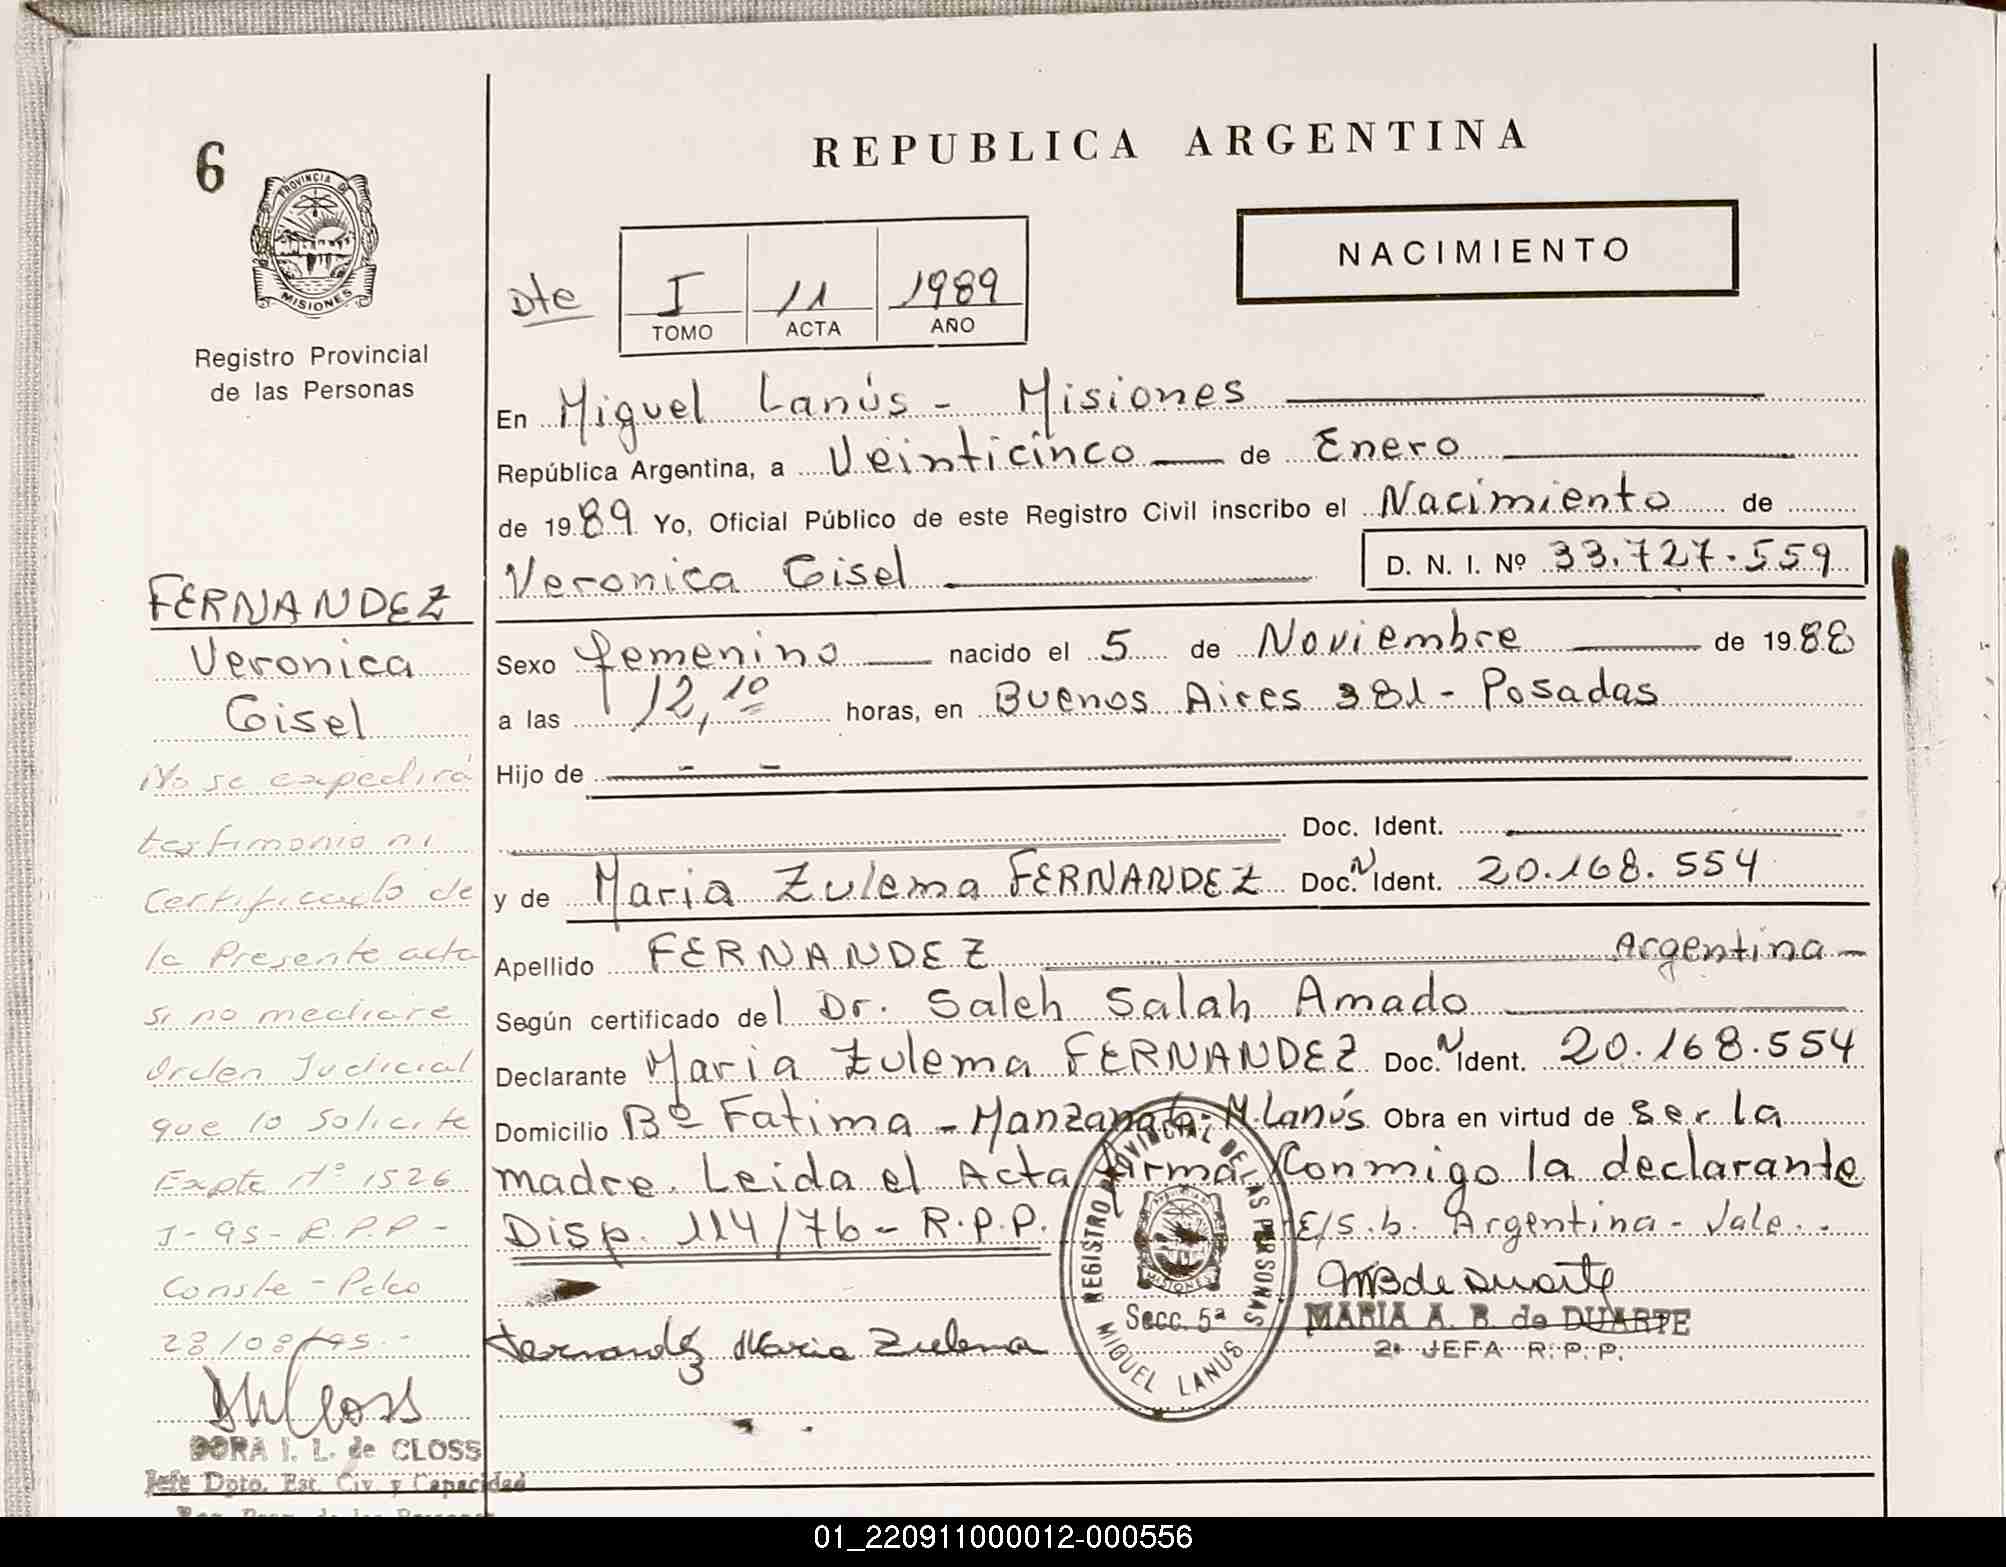 6
PROVINCIA DE
MISIONES
Registro Provincial
de las Personas
FERNANDEZ
Veronica
Gisel
No se expedirá
testimonio ni
Certificado de
la Presente acta
si no mediare
Orden Judicial
que lo Solicite
Expte Nº 1526
I-95-R.P.P-
Conste - Pdas
28/08/95.-
DORA I. L. de CLOSS
Jefe Dpto. Est. Civ. y Capacidad
REPUBLICA ARGENTINA
NACIMIENTO
Dte
I 11 1989
TOMO ACTA AÑO
En Miguel Lanús - Misiones
República Argentina, a Veinticinco de Enero
de 1989 Yo, Oficial Público de este Registro Civil inscribo el Nacimiento de
Veronica Gisel D. N. I. Nº 33.727.559
Sexo femenino nacido el 5 de Noviembre de 1988
a las 12,10 horas, en Buenos Aires 381 - Posadas
Hijo de - -
Doc. Ident.
y de Maria Zulema FERNANDEZ Doc. N Ident. 20.168.554
Apellido FERNANDEZ Argentina -
Según certificado del Dr. Saleh Salah Amado
Declarante Maria Zulema FERNANDEZ Doc. N Ident. 20.168.554
Domicilio Bº Fatima - Manzana M. Lanús Obra en virtud de ser la
madre. Leida el Acta firma Conmigo la declarante
Disp. 114/76 - R.P.P. E/S.b. Argentina - Vale.-
Fernandez Maria Zulema
REGISTRO PROVINCIAL DE LAS PERSONAS
MISIONES
Secc. 5ª
MIGUEL LANUS
MB de Duarte
MARIA A. B. de DUARTE
2ª JEFA R. P. P.
01_220911000012-000556